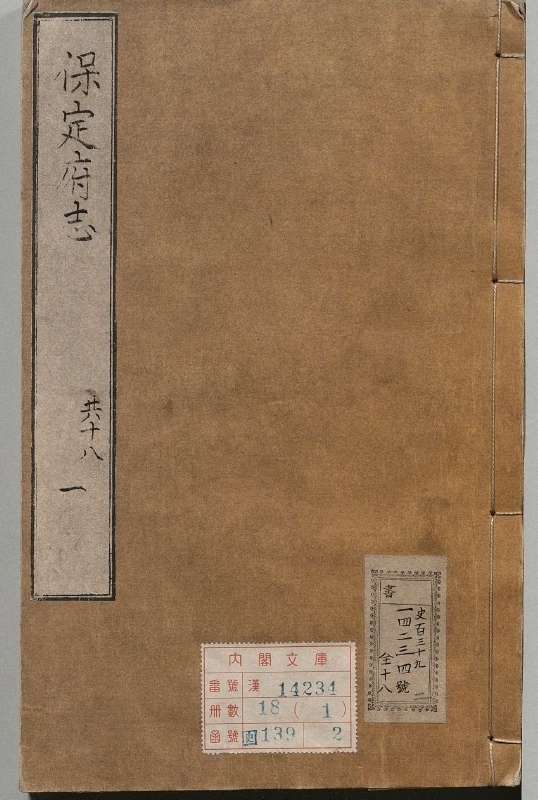 保定府志
共十八
一
書
史百三十九
一四二三四號
全十八
内閣文庫
番號 漢 14234
冊數 18(1)
函號 139 2